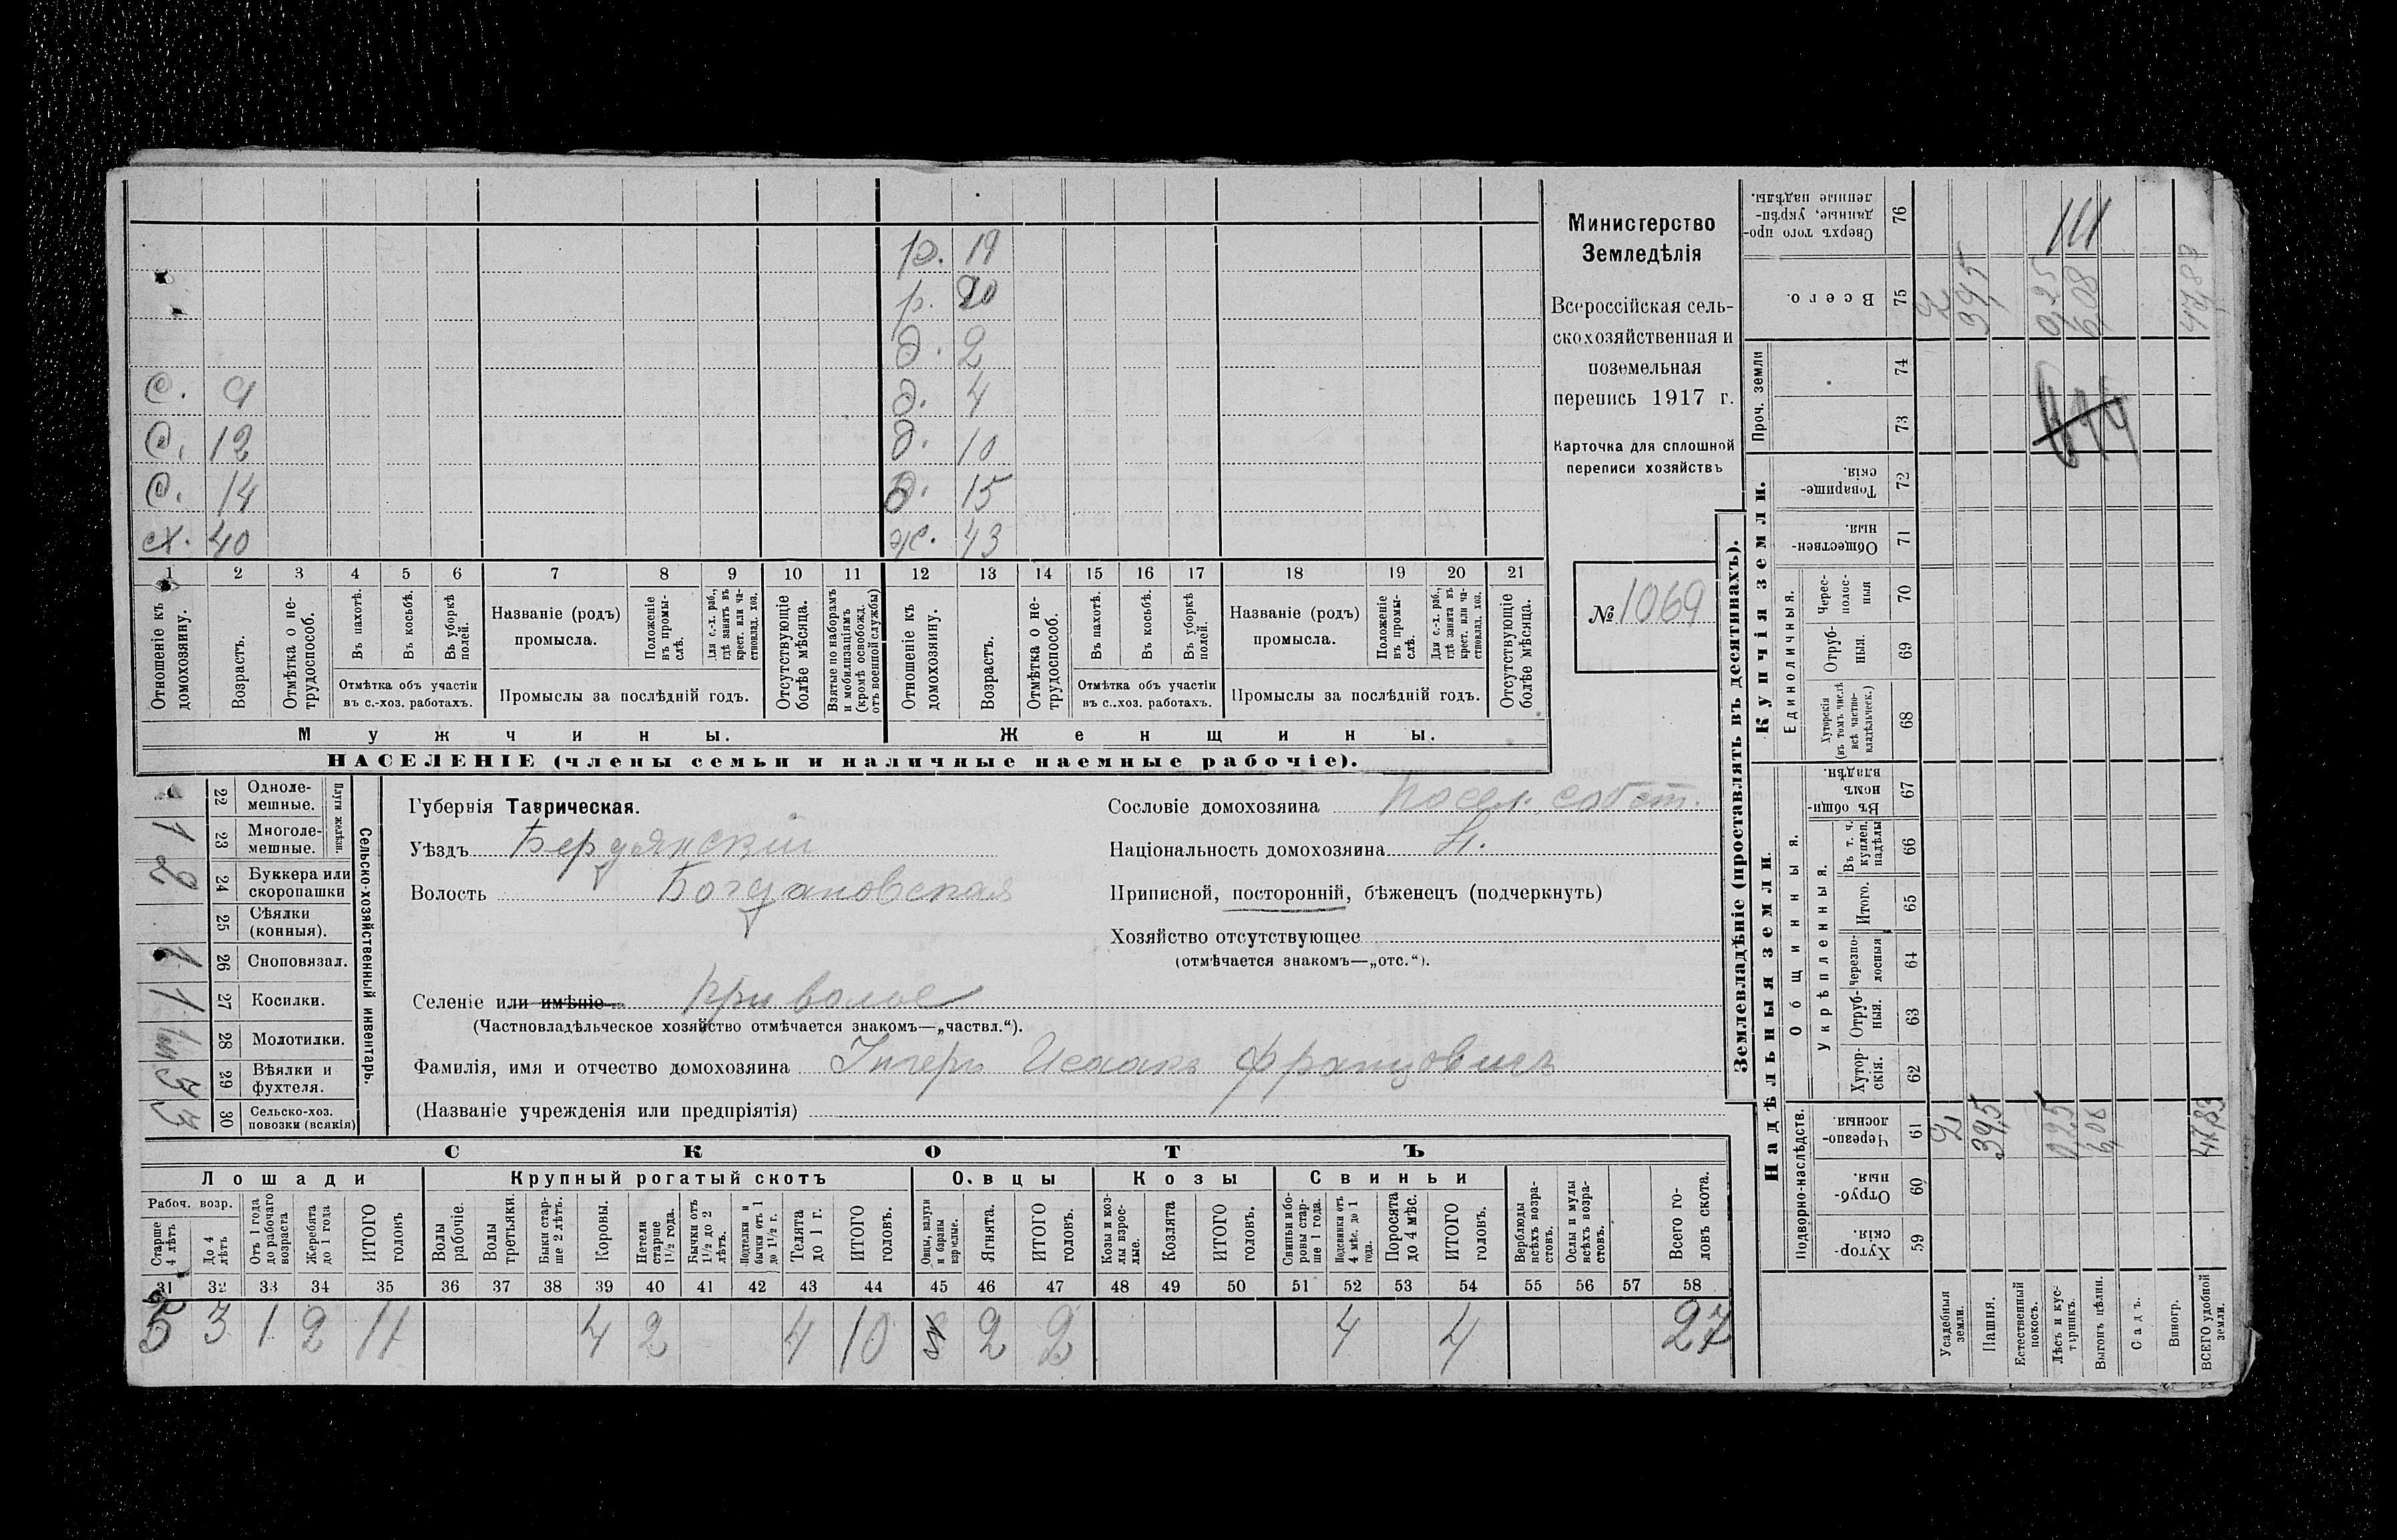 р. 19
р. 20
д. 2
с. 9 д. 4
с. 12 д. 10
с. 14 д. 15
х. 40 ж. 43
1 2 3 4 5 6 7 8 9 10 11 12 13 14 15 16 17 18 19 20 21
Отношеніе къ домохозяину.
Возрастъ.
Отмѣтка о не-трудоспособ.
Въ пахотѣ.
Въ косьбѣ.
Въ уборкѣ полей.
Отмѣтка объ участіи въ с.-хоз. работахъ.
Названіе (родъ) промысла.
Положеніе въ промы-слѣ.
Для с.-х. раб., гдѣ занятъ въ крест. или ча-стновлад. хоз.
Промыслы за послѣдній годъ.
Отсутствующіе болѣе мѣсяца.
Взятые по наборамъ и мобилизаціямъ (кромѣ освобожд. отъ военной службы)
Отношеніе къ домохозяину.
Возрастъ.
Отмѣтка о не-трудоспособ.
Въ пахотѣ.
Въ косьбѣ.
Въ уборкѣ полей.
Отмѣтка объ участіи въ с..хоз. работахъ.
Названіе (родъ) промысла.
Положеніе въ промы-слѣ.
Для с.-х. раб., гдѣ занята въ крест. или ча-стновлад. хоз.
Промыслы за послѣдній годъ.
Отсутствующіе болѣе мѣсяца.
Мужчины.
Женщины.
НАСЕЛЕНІЕ (члены семьи и наличные наемные рабочіе).
Министерство
Земледѣлія
Всероссійская сель-
скохозяйственная и
поземельная
перепись 1917 г.
Карточка для сплошной
переписи хозяйствъ
№ 1069
22 Одноле-мешные.
1 23 Многоле-мешные.
Плуги желѣзн.
2 24 Буккера или скоропашки
25 Сѣялки (конныя).
1 26 Сноповязал.
1 27 Косилки.
28 Молотилки.
29 Вѣялки и фухтеля.
3 30 Сельско-хоз. повозки (всякія)
Сельско-хозяйственный инвентарь.
Губернія Таврическая.
Уѣздъ Бердянскій
Волость Богдановская
Селеніе или имѣніе Приволье
(Частновладѣльческое хозяйство отмѣчается знакомъ—„частвл.“).
Фамилія, имя и отчество домохозяина Исаакъ Францовичъ
(Названіе учрежденія или предпріятія)
Сословіе домохозяина посел. собст.
Національность домохозяина Н.
Приписной, посторонній, бѣженецъ (подчеркнуть)
Хозяйство отсутствующее
(отмѣчается знакомъ—„отс.“).
СКОТЪ
Лошади
Крупный рогатый скотъ
Овцы
Козы
Свиньи
Рабоч. возр.
Старше 4 лѣтъ
До 4 лѣтъ
Отъ 1 года до рабочаго возраста
Жеребята до 1 года
ИТОГО головъ
Волы рабочіе.
Волы третьяки.
Быки стар-ше 2 лѣтъ.
Коровы.
Нетели старше 1 1/2 года.
Бычки отъ 1 1/2 до 2 лѣтъ.
Подтелки и бычки отъ 1 до 1 1/2 г.
Телята до 1 г.
ИТОГО головъ.
Овцы, валухи и бараны взрослые.
Ягнята.
ИТОГО головъ.
Козы и коз-лы взрос-лые.
Козлята
ИТОГО головъ.
Свиньи и бо-ровы стар-ше 1 года.
Подсвинки отъ 4 мѣс. до 1 года.
Поросята до 4 мѣс.
ИТОГО головъ.
Верблюды всѣхъ возра-стовъ.
Ослы и мулы всѣхъ возра-стовъ.
Всего го-ловъ скота.
31 32 33 34 35 36 37 38 39 40 41 42 43 44 45 46 47 48 49 50 51 52 53 54 55 56 57 58
5 3 1 2 11 4 2 4 10 2 2 4 4 27
Землевладѣніе (проставлять въ десятинахъ).
Надѣльныя земли.
Купчія земли.
Проч. земли
Подворно-наслѣдств.
Общинныя.
Укрѣпленныя.
Единоличныя.
Хутор-скія. 59
Отруб-ныя. 60
Черезпо-лосныя. 61 2 39,5 0,25 6,08 47,83
Хутор-скія. 62
Отруб-ныя. 63
Черезпо-лосныя 64
Итого. 65
Въ т. ч. куплен. надѣлы 66
Въ общин-номъ владѣн. 67
Хуторскія (въ томъ числѣ всѣ частно-владѣльческ.) 68
Отруб-ныя. 69
Черес-полос-ныя 70
Обществен-ныя. 71
Товарище-скія. 72
73
74
Всего. 75 2 39,5 0,25 6,08 47,83
Сверхъ того про-данные, укрѣп-ленные надѣлы. 76
Усадебныя земли.
Пашня.
Естественный покосъ.
Лѣсъ и кус-тарникъ.
Выгонъ цѣлин.
Садъ.
Виногр.
ВСЕГО удобной земли.